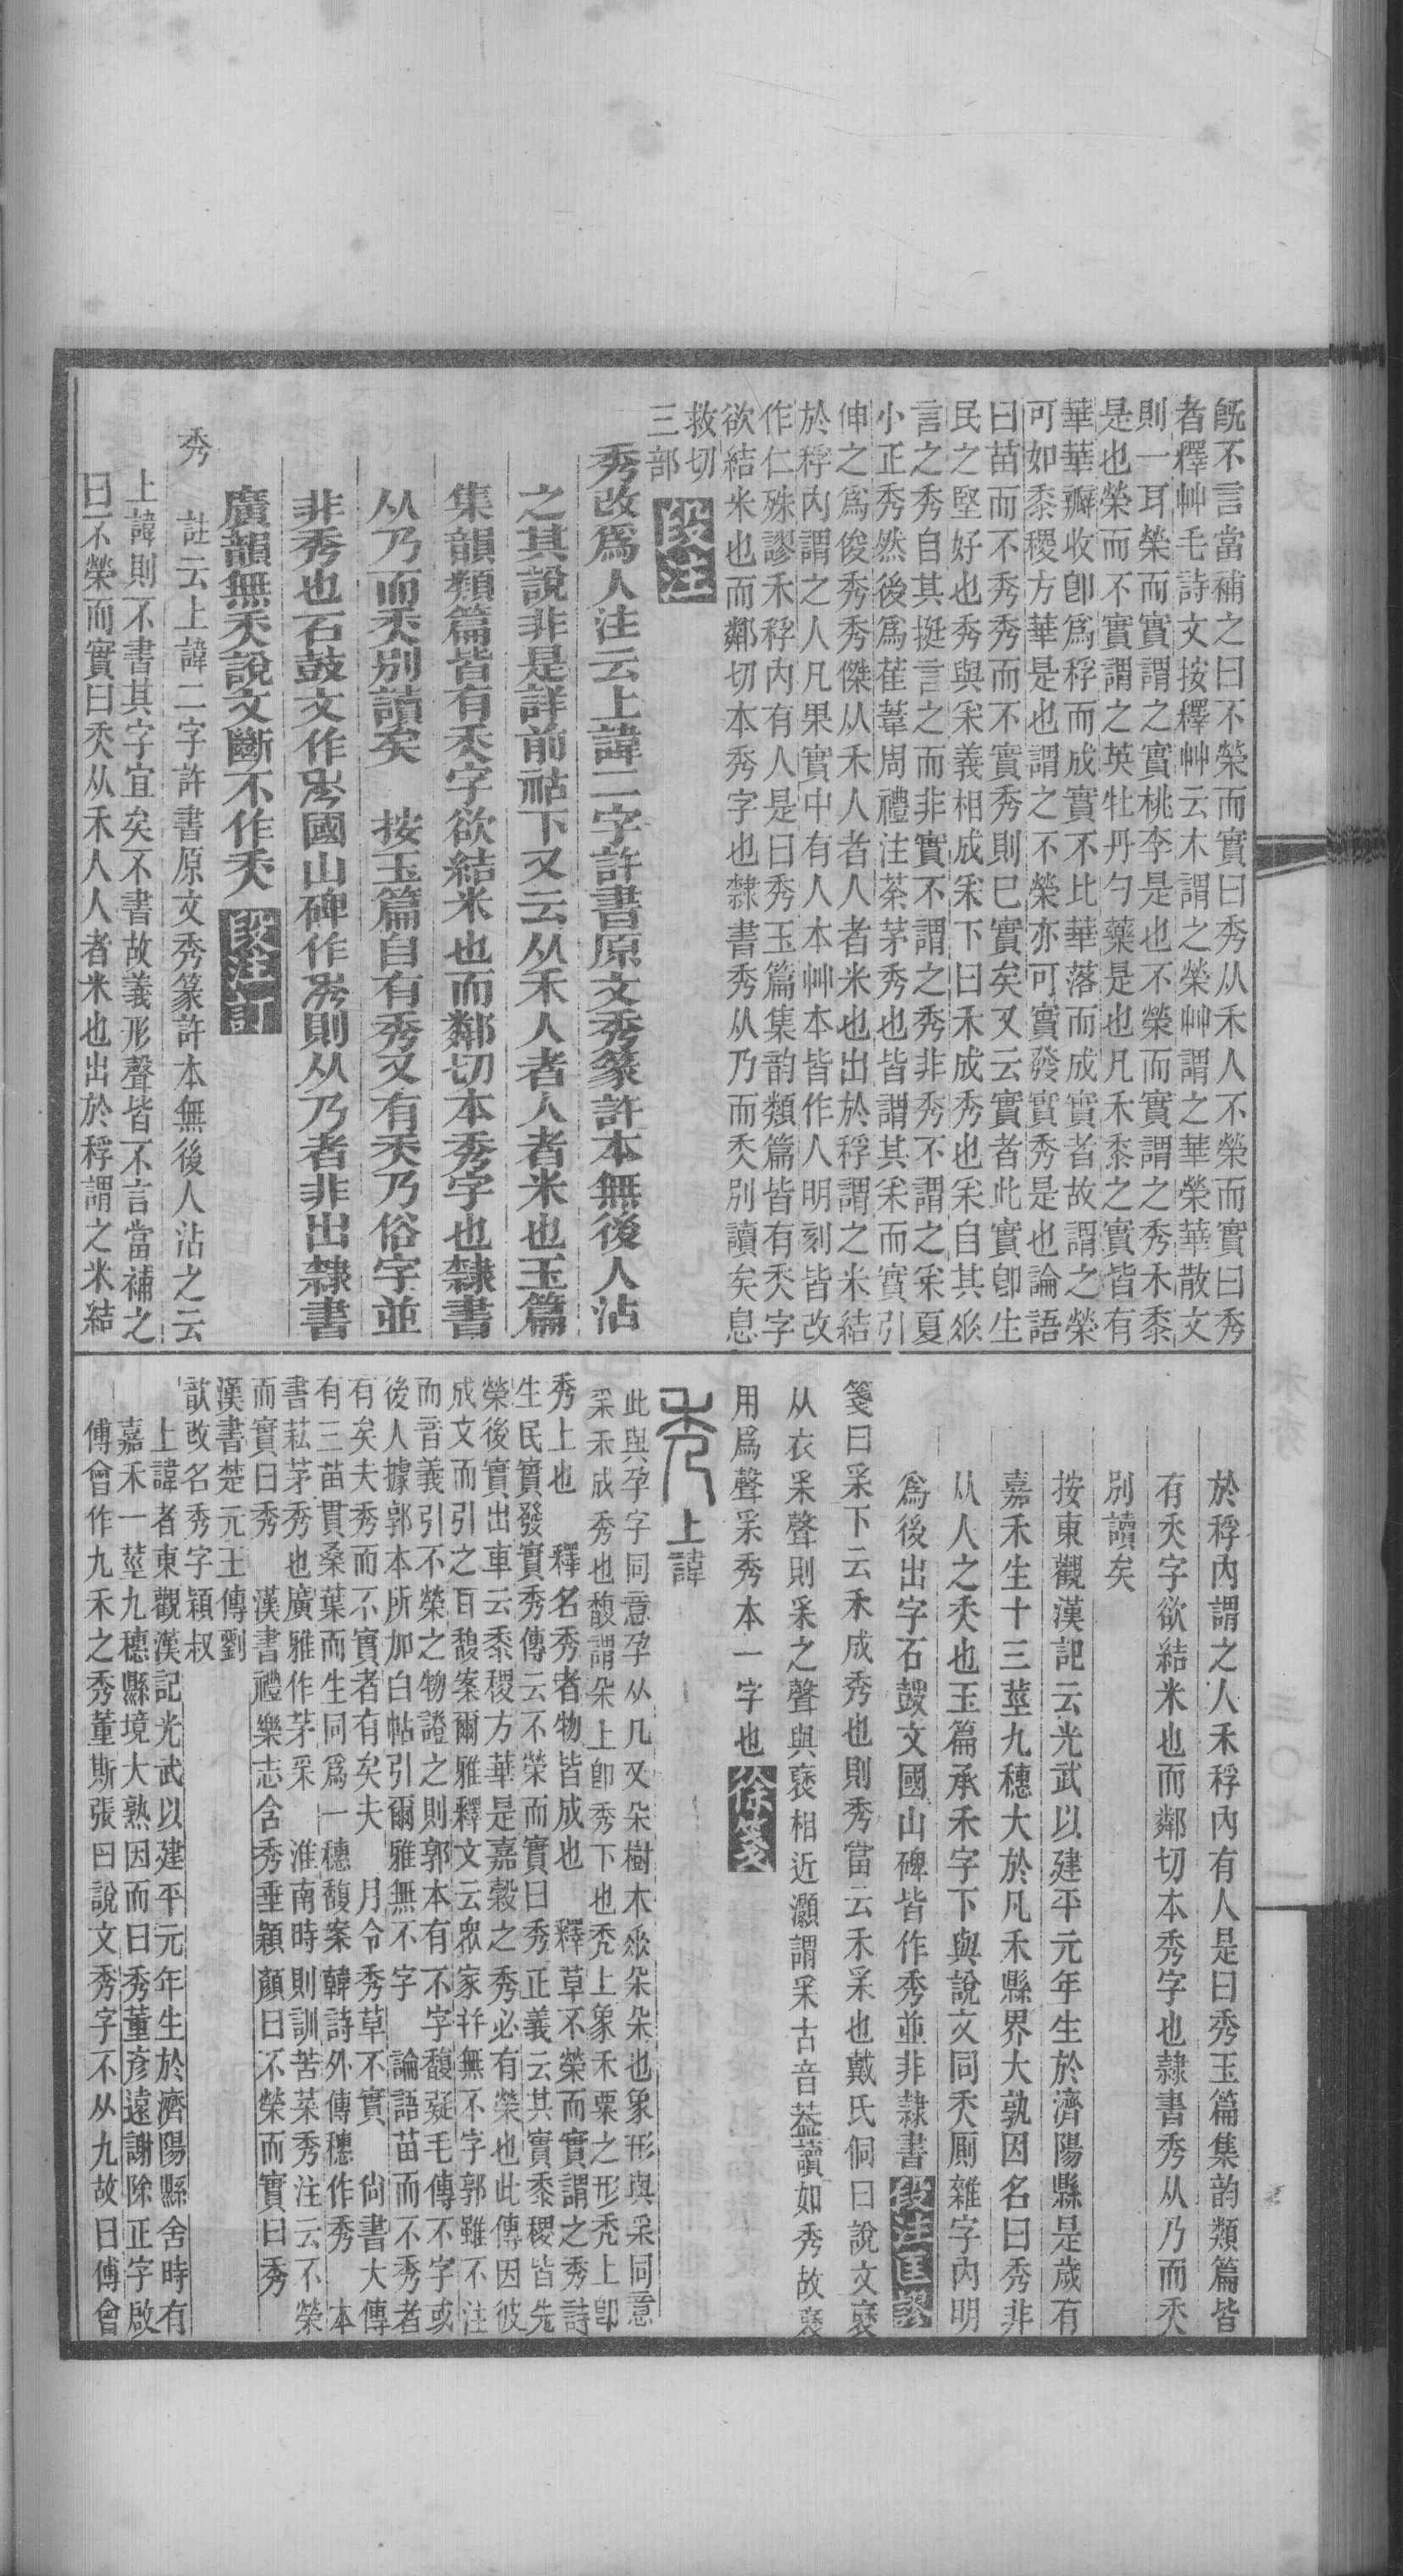 既不言當補之曰不榮而實曰秀从禾人不榮而實曰秀
者釋艸毛詩文按釋艸云木謂之榮艸謂之華榮華散文
則一耳榮而實謂之實桃李是也不榮而實謂之秀禾黍
是也榮而不實謂之英牡丹勺藥是也凡禾黍之實皆有
華華瓣收卽爲稃而成實不比華落而成實者故謂之榮
可如黍稷方華是也謂之不榮亦可實發實秀是也論語
曰苗而不秀秀而不實秀則已實矣又云實者此實卽生
民之堅好也秀與采義相成采下曰禾成秀也采自其𠂹
言之秀自其挺言之而非實不謂之秀非秀不謂之采夏
小正秀然後爲萑葦周禮注荼茅秀也皆謂其采而實引
伸之爲俊秀秀傑从禾人者人者米也出於稃謂之米結
於稃內謂之人凡果實中有人本艸本皆作人明刻皆改
作仁殊謬禾稃內有人是曰秀玉篇集韵類篇皆有秂字
欲結米也而鄰切本秀字也隸書秀从乃而秂別讀矣息
救切
三部 段注
秀改爲人注云上諱二字許書原文秀篆許本無後人沾
之其說非是詳前祜下又云从禾人者人者米也玉篇
集韻類篇皆有秂字欲結米也而鄰切本秀字也隸書
从乃而秂別讀矣 按玉篇自有秀又有秂乃俗字並
非秀也石鼓文作𥝢國山碑作𥝢則从乃者非出隸書
廣韻無秂說文斷不作秂 段注訂
秀 註云上諱二字許書原文秀篆許本無後人沾之云
上諱則不書其字宜矣不書故義形聲皆不言當補之
曰不榮而實曰秂从禾人人者米也出於稃謂之米結
於稃內謂之人禾稃內有人是曰秀玉篇集韵類篇皆
有秂字欲結米也而鄰切本秀字也隸書秀从乃而秂
別讀矣
按東觀漢記云光武以建平元年生於濟陽縣是歲有
嘉禾生十三莖九穗大於凡禾縣界大孰因名曰秀非
从人之秂也玉篇承禾字下與說文同秂厠雜字內明
爲後出字石鼓文國山碑皆作秀並非隸書 段注匡謬
箋曰采下云禾成秀也則秀當云禾采也戴氏侗曰說文褎
从衣采聲則采之聲與褎相近灝謂采古音葢讀如秀故褎
用爲聲采秀本一字也 徐箋
秀 上諱
此與孕字同意孕从几又朵樹木𠂹朵朵也象形與采同意
采禾成秀也馥謂朵上卽秀下也禿上象禾粟之形禿上卽
秀上也 釋名秀者物皆成也 釋草不榮而實謂之秀詩
生民實發實秀傳云不榮而實曰秀正義云其實黍稷皆先
榮後實出車云黍稷方華是嘉穀之秀必有榮也此傳因彼
成文而引之百馥案爾雅釋文云衆家幷無不字郭雖不注
而音義引不榮之物證之則郭本有不字馥疑毛傳不字或
後人據郭本所加白帖引爾雅無不字 論語苗而不秀者
有矣夫秀而不實者有矣夫 月令秀草不實 尙書大傳
有三苗貫桑葉而生同爲一穗馥案韓詩外傳穗作秀 本
書䓉茅秀也廣雅作茅采 淮南時則訓苦菜秀注云不榮
而實曰秀 漢書禮樂志含秀垂穎顏曰不榮而實曰秀
漢書楚元王傳劉
歆改名秀字穎叔
上諱者東觀漢記光武以建平元年生於濟陽縣舍時有
嘉禾一莖九穗縣境大熟因而曰秀董彥遠謝除正字啟
傅會作九禾之秀董斯張曰說文秀字不从九故曰傅會